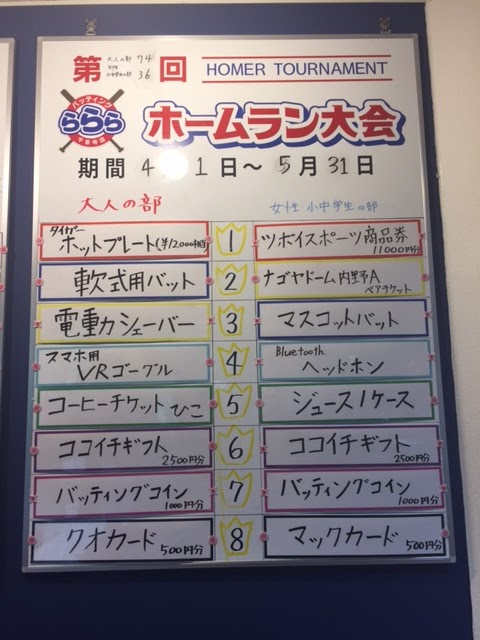 第 大人の部 74 回 HOMER TOURNAMENT
女性 小中学生の部 36
バッティング
ららら
ホームラン大会
期間 4 1日〜5月31日
大人の部 女性 小中学生の部
タイガー
ホットプレート(¥12000相当) 1 ツボイスポーツ商品券
11000円分
軟式用バット 2 ナゴヤドーム内野A
ペアチケット
電動シェーバー 3 マスコットバット
スマホ用 Bluetooth
VRゴーグル 4 ヘッドホン
コーヒーチケット ひこ 5 ジュース1ケース
ココイチギフト 6 ココイチギフト
2500円分 2500円分
バッティングコイン 7 バッティングコイン
1000円分 1000円分
クオカード 8 マックカード
500円分 500円分